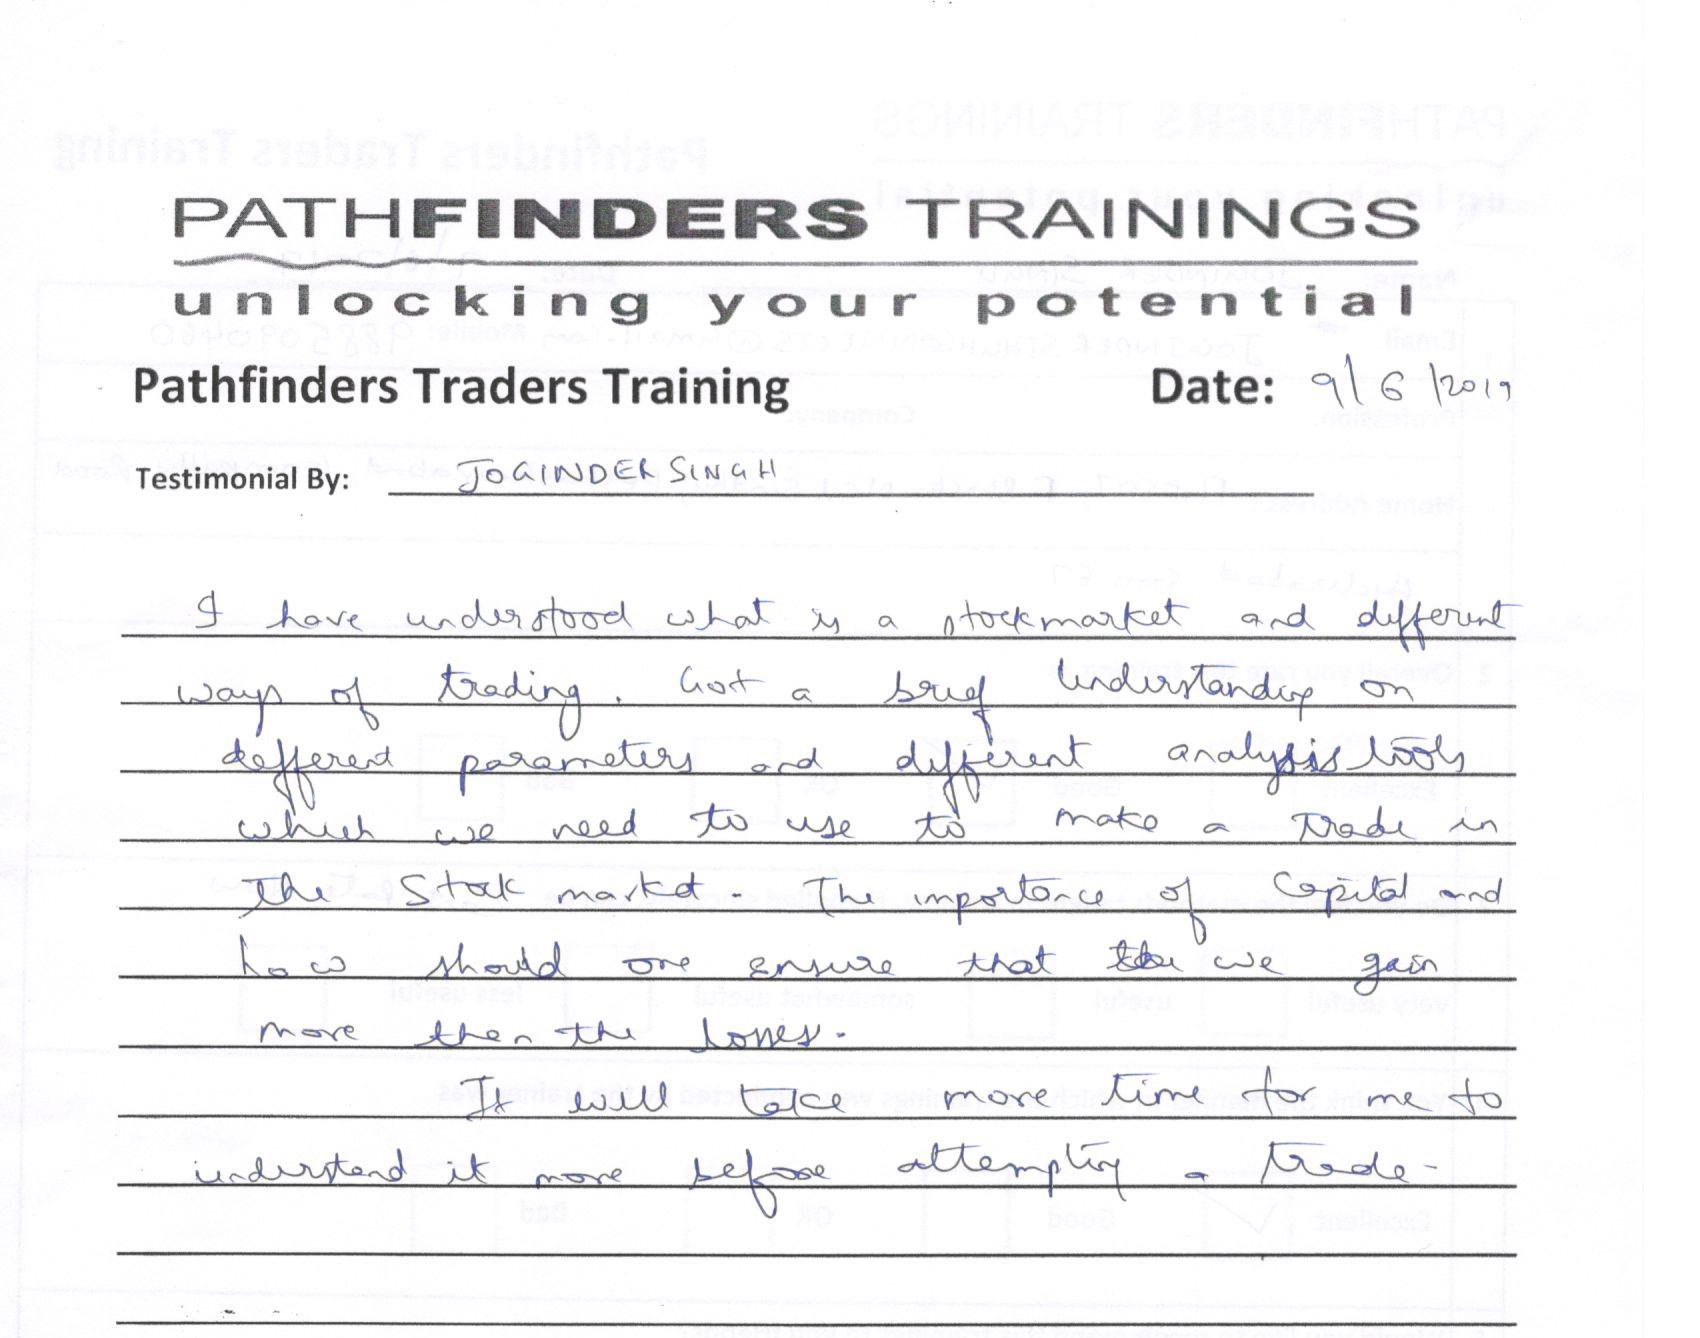 PATHFINDERS TRAININGS
unlocking your potential
Pathfinders Traders Training Date: 9/6/2019
Testimonial By: JOGINDER SINGH
I have understood what is a stockmarket and different
ways of trading. Got a brief Understanding on
defferent parameters and different analysis tools
which we need to use to make a trade in
the Stock market. The importance of Capital and
how should one ensure that we gain
more then the losses.
It will take more time for me to
understand it more before attempting a trade.